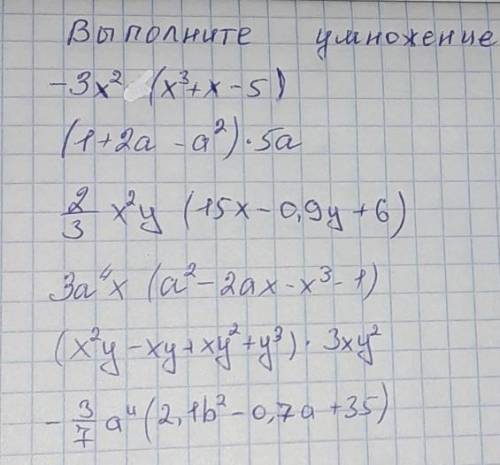 Выполните умножение
-3x² (x³+x-5)
(1+2a-a²)·5a
2/3 x²y (15x-0,9y+6)
3a⁴x (a²-2ax-x³-1)
(x²y-xy+xy²+y³)·3xy²
-3/7 a⁴(2,1b²-0,7a+35)